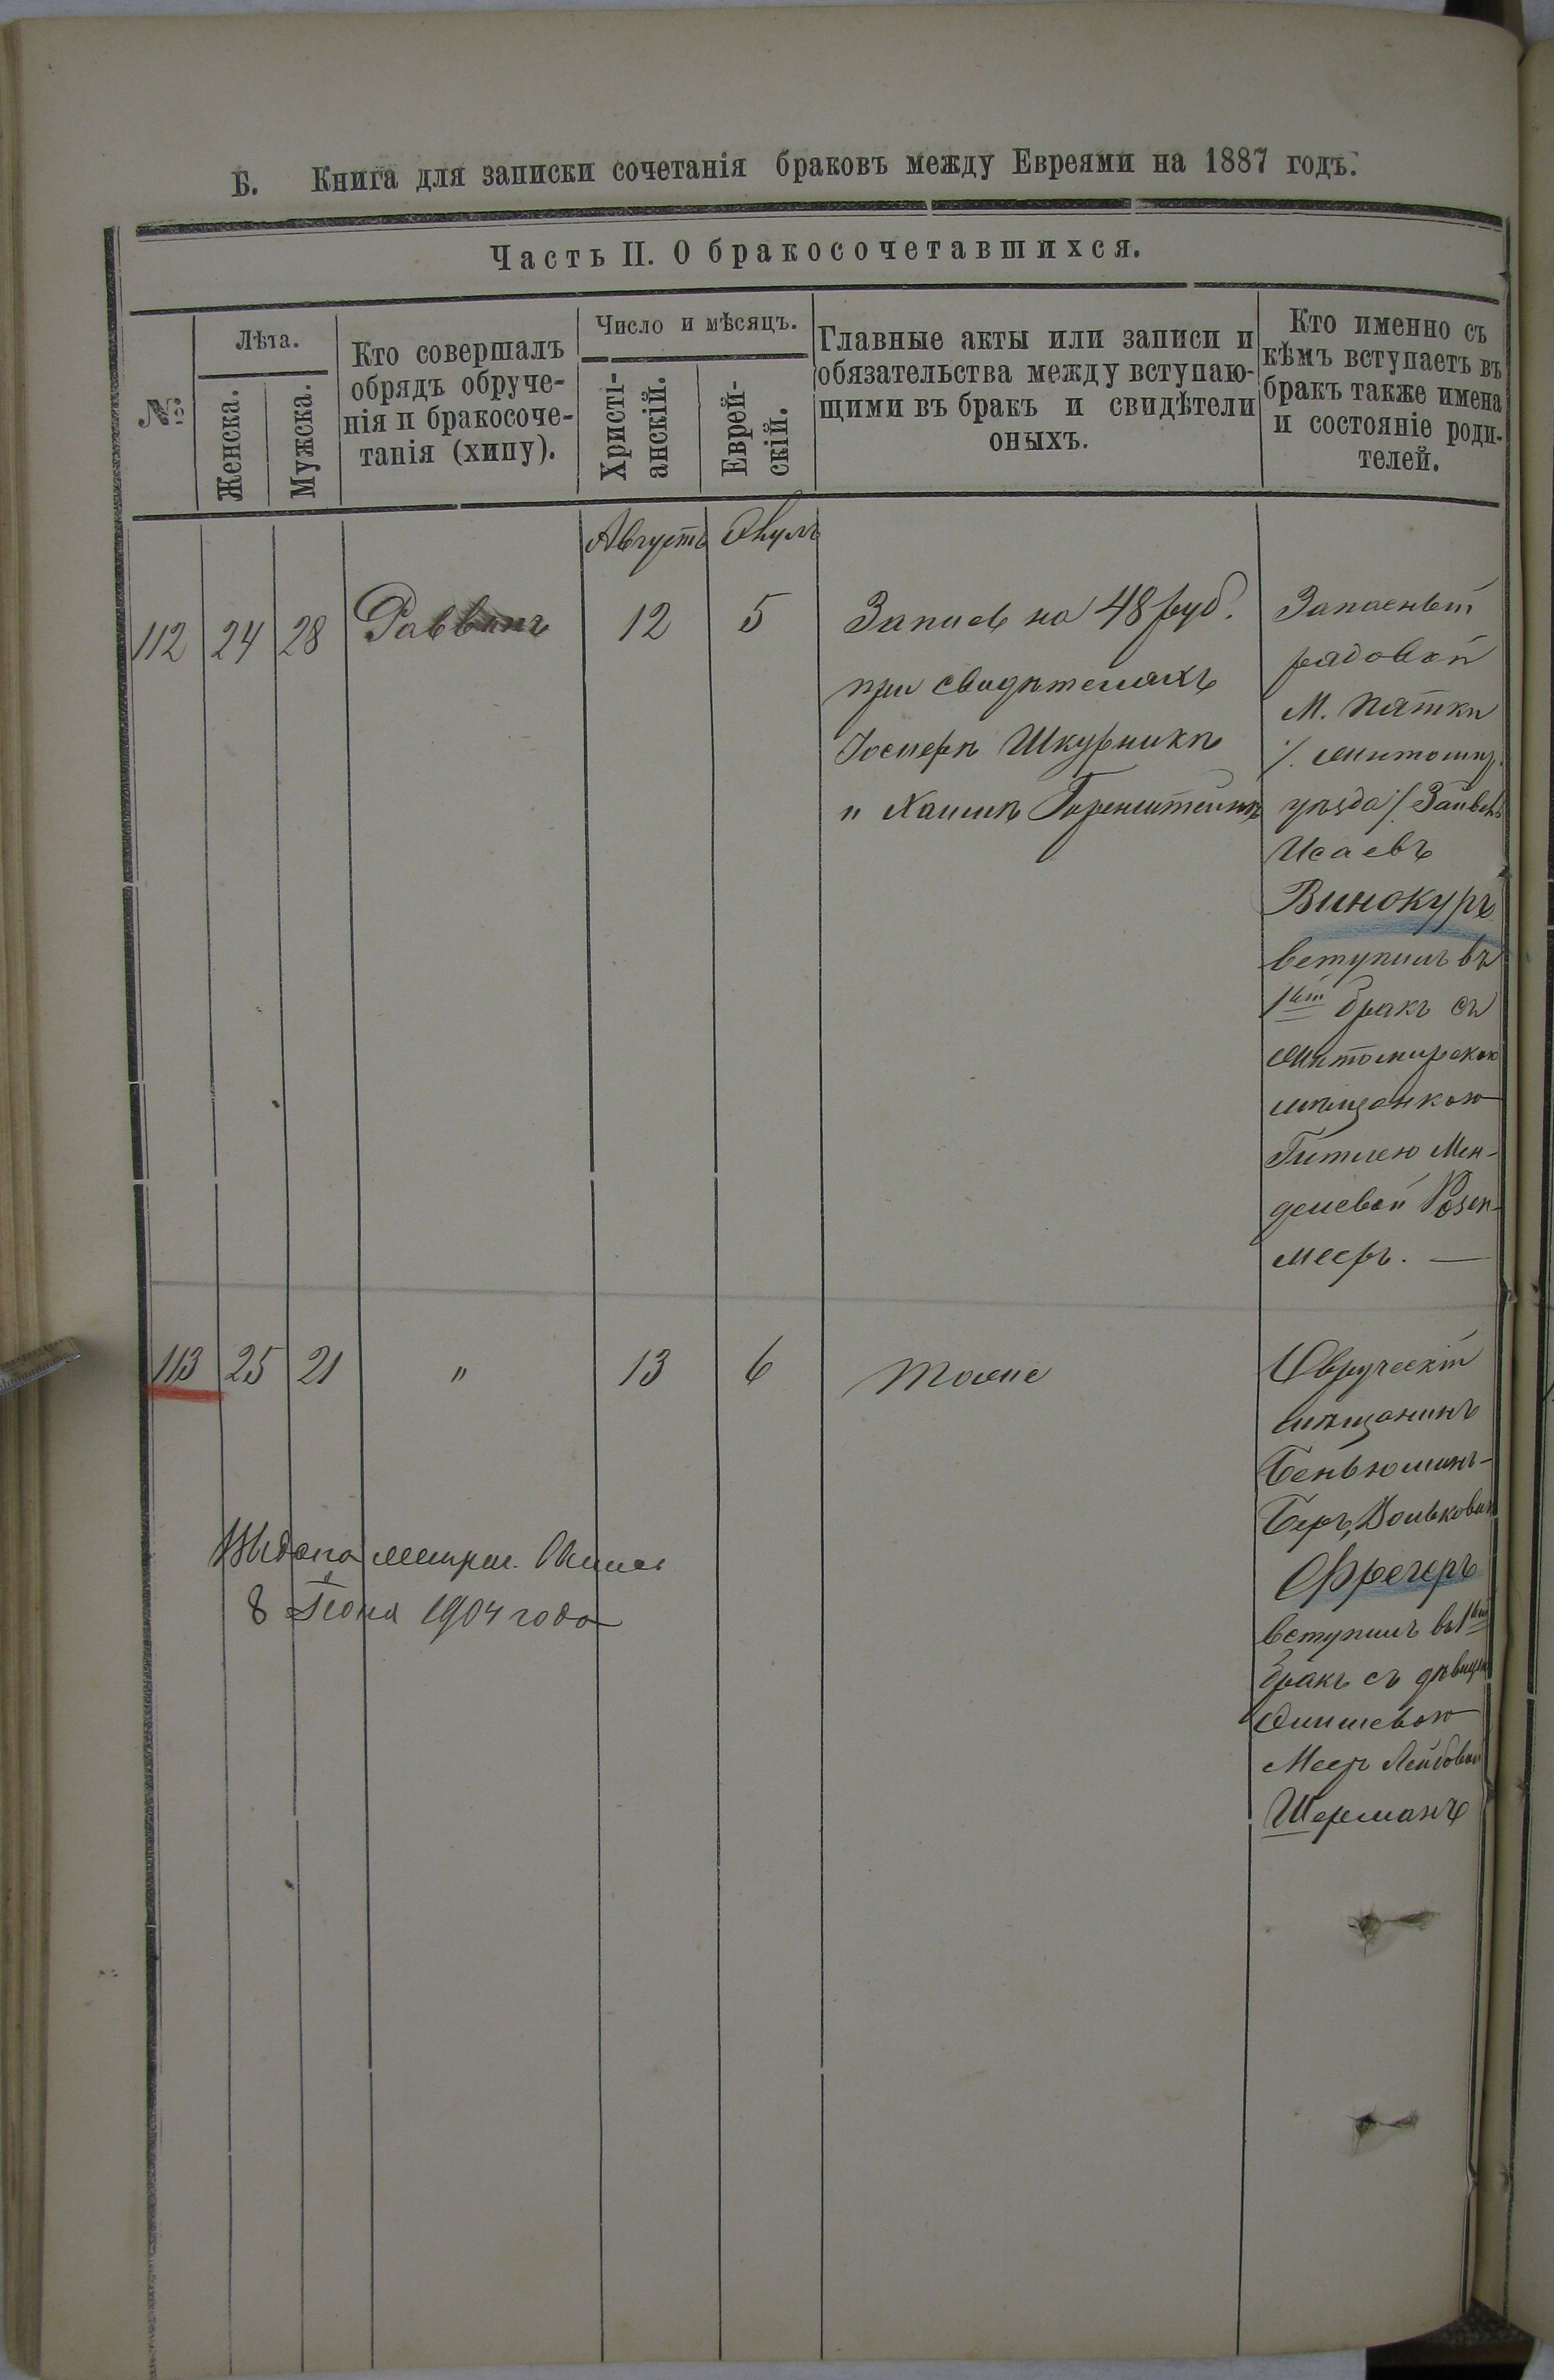 Б. Книга для записки сочетанія браковъ между Евреями на 1887 годъ.
Часть II. О бракосочетавшихся.
№
Лѣта.
Женска.
Мужска.
Кто совершалъ
обрядъ обруче-
нія и бракосоче-
танія (хипу).
Число и мѣсяцъ.
Христі-
анскій.
Еврей-
скій.
Главные акты или записи и
обязательства между вступаю-
щими въ бракъ и свидѣтели
оныхъ.
Кто именно съ
кѣмъ вступаетъ въ
бракъ также имена
и состояніе роди-
телей.
Августъ
112 24 28 Раввинъ 12 5
Запись на 48 руб.
при свидѣтеляхъ
Іосифѣ Шкурникѣ
и Хаимѣ Горенштейнѣ
Запасный
рядовой
М. Пятки
/. Житомир.
уѣзда/.
Исаевъ
Винокуръ
вступилъ въ
1ый бракъ съ
Житомирскою
мѣщанкою
Гитлею Мен-
делевой Розен-
мееръ. —
113 25 21 " 13 6
тоже
Овручскій
мѣщанинъ
Беньюминъ-
Беръ Вольковичъ
Фрегеръ
вступилъ въ 1ый
бракъ съ дѣвицею
Меер Лейбовой
Шерманъ
Выдана метрич.
8 Іюня 1904 года